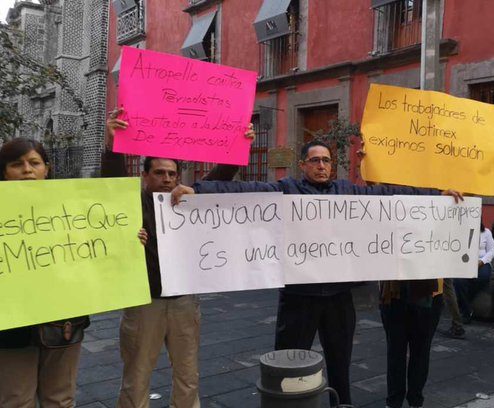 Atropello contra
Periodistas
Atentado a la Libertad
De Expresión!
Los trabajadores de
Notimex
exigimos solución
residenteQue
eMientan
¡Sanjuana NOTIMEX NO es tu empres
Es una agencia del Estado!